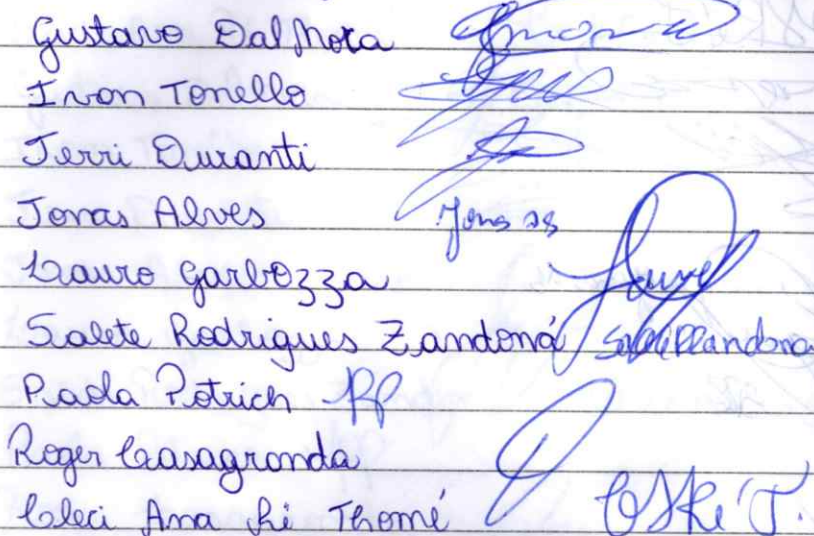 Gustavo Dal Mora
Ivan Tonello
Jerri Duranti
Jonas Alves Jonas
Lauro Garbozza
Salete Rodrigues Zandoná
Paola Potrich
Roger Casagranda
Cleci Ana Thomé